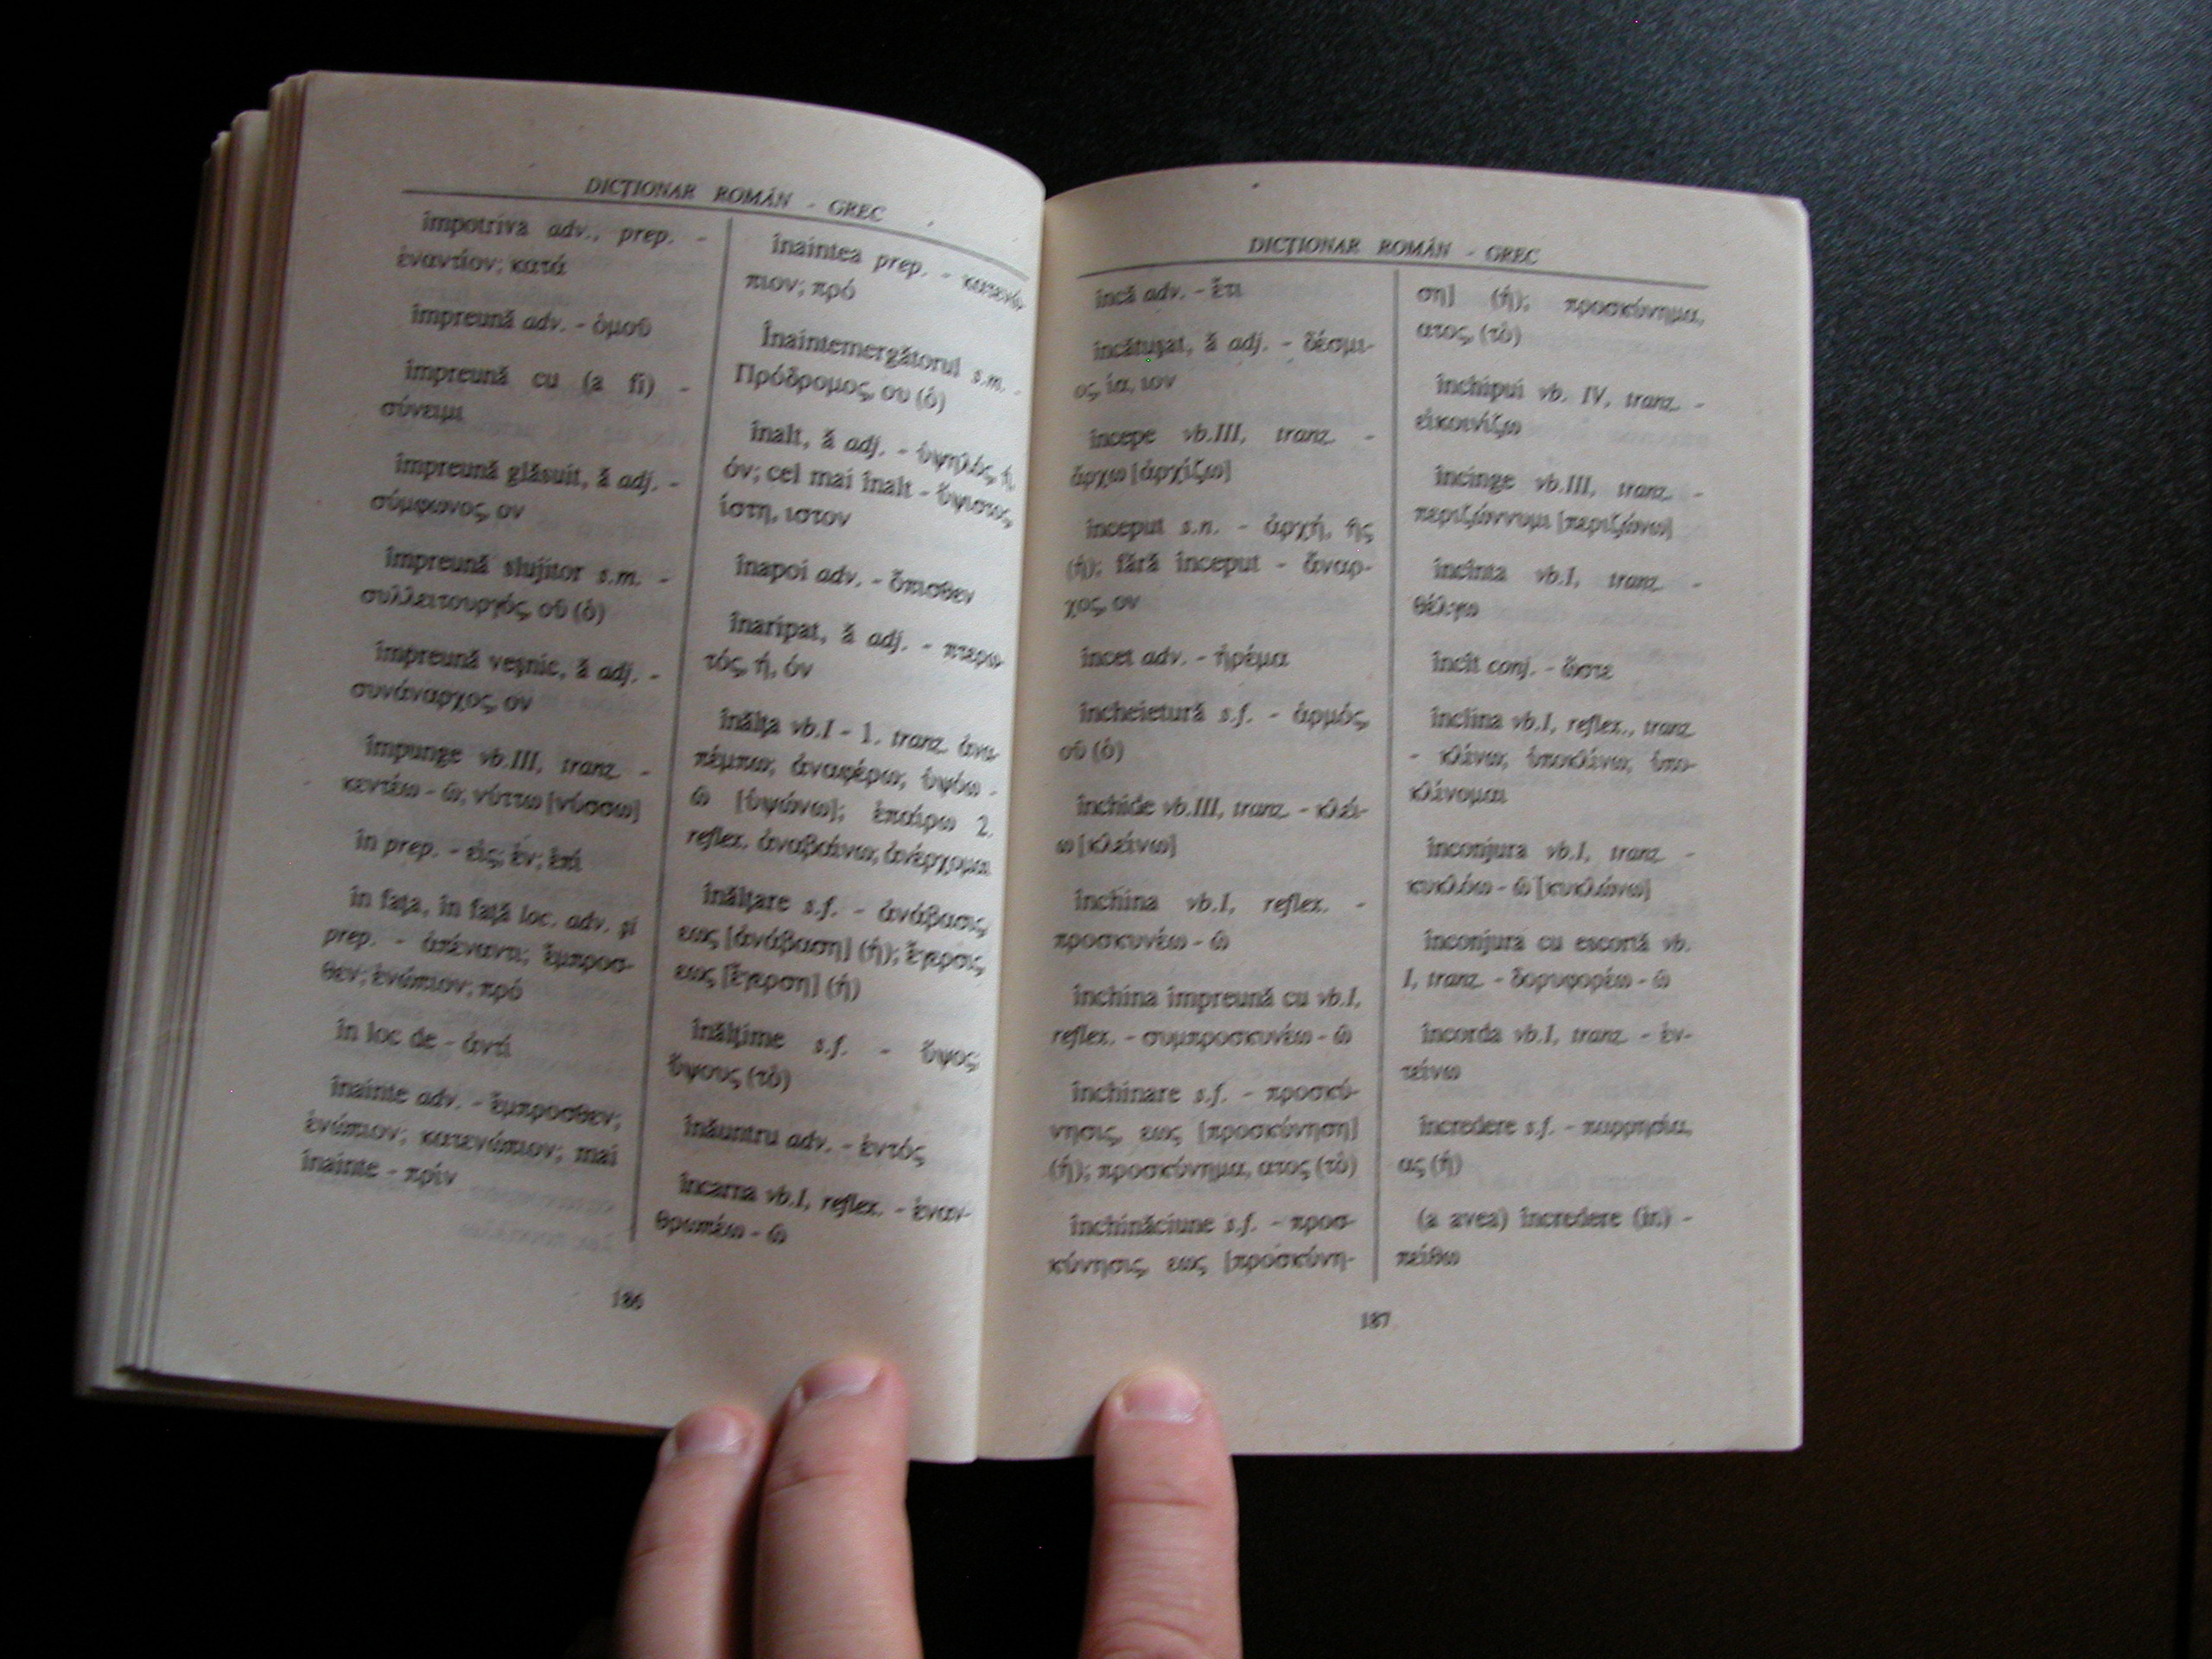 DICȚIONAR ROMÂN - GREC
împotriva adv., prep. -
ἐναντίον; κατά
împreună adv. - ὁμοῦ
împreună cu (a fi) -
σύνειμι
împreună glăsuit, ă adj. -
σύμφωνος, ον
împreună slujitor s.m. -
συλλειτουργός, οῦ (ὁ)
împreună veșnic, ă adj. -
συνάναρχος, ον
împunge vb.III, tranz. -
κεντέω - ῶ; νύττω [νύσσω]
în prep. - εἰς; ἐν; ἐπί
în fața, în față loc. adv. și
prep. - ἀπέναντι; ἔμπροσ-
θεν; ἐνώπιον; πρό
în loc de - ἀντί
înainte adv. - ἔμπροσθεν;
ἐνώπιον; κατενώπιον; mai
înainte - πρίν
înaintea prep. - κατενώ-
πιον; πρό
Înaintemergătorul s.m. -
Πρόδρομος, ου (ὁ)
înalt, ă adj. - ὑψηλός, ή,
όν; cel mai înalt - ὕψιστος,
ίστη, ιστον
înapoi adv. - ὄπισθεν
înaripat, ă adj. - πτερω-
τός, ή, όν
înălța vb.I - 1. tranz. ἀνα-
πέμπω; ἀναφέρω; ὑψόω -
ῶ [ὑψώνω]; ἐπαίρω 2.
reflex. ἀναβαίνω; ἀνέρχομαι
înălțare s.f. - ἀνάβασις,
εως [ἀνάβαση] (ἡ); ἔγερσις,
εως [ἔγερση] (ἡ)
înălțime s.f. - ὕψος;
ὕψους (τὸ)
înăuntru adv. - ἐντός
încarna vb.I, reflex. - ἐναν-
θρωπέω - ῶ
186
DICȚIONAR ROMÂN - GREC
încă adv. - ἔτι
încătușat, ă adj. - δέσμι-
ος, ία, ιον
începe vb.III, tranz. -
ἄρχω [ἀρχίζω]
început s.n. - ἀρχή, ῆς
(ἡ); fără început - ἄναρ-
χος, ον
încet adv. - ἠρέμα
încheietură s.f. - ἁρμός,
οῦ (ὁ)
închide vb.III, tranz. - κλεί-
ω [κλείνω]
închina vb.I, reflex. -
προσκυνέω - ῶ
închina împreună cu vb.I,
reflex. - συμπροσκυνέω - ῶ
închinare s.f. - προσκύ-
νησις, εως [προσκύνηση]
(ἡ); προσκύνημα, ατος (τὸ)
închinăciune s.f. - προσ-
κύνησις, εως [προσκύνη-
ση] (ἡ); προσκύνημα,
ατος, (τὸ)
închipui vb. IV, tranz. -
εἰκονίζω
încinge vb.III, tranz. -
περιζώννυμι [περιζώνω]
încînta vb.I, tranz. -
θέλγω
încît conj. - ὥστε
înclina vb.I, reflex., tranz.
- κλίνω; ὑποκλίνω; ὑπο-
κλίνομαι
înconjura vb.I, tranz. -
κυκλόω - ῶ [κυκλώνω]
înconjura cu escortă vb.
I, tranz. - δορυφορέω - ῶ
încorda vb.I, tranz. - ἐν-
τείνω
încredere s.f. - παρρησία,
ας (ἡ)
(a avea) încredere (în) -
πείθω
187